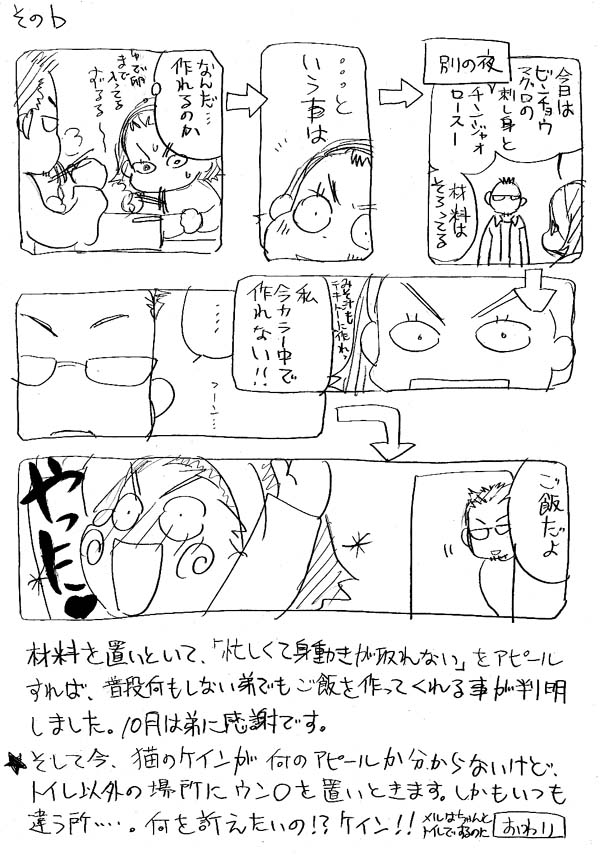 その6
なんだ…
作れるのか
ゆで卵
まで
入ってる
ずるる
…と
いう事は
別の夜
今日は
ビンチョウ
マグロの
刺し身と
チンジャオ
ロースー
材料は
そろってる
みそ汁も
テキトーに作れっ
私
今カラー中で
作れない!!
……
フーン…
ご飯だよ
やった♥
材料を置いといて、「忙しくて身動きが取れない」をアピール
すれば、普段何もしない弟でもご飯を作ってくれる事が判明
しました。10月は弟に感謝です。
★そして今、猫のケインが何のアピールか分からないけど、
トイレ以外の場所にウン〇を置いときます。しかもいつも
違う所…。何を訴えたいの!?ケイン!!
メルはちゃんと
トイレでするのに
おわり